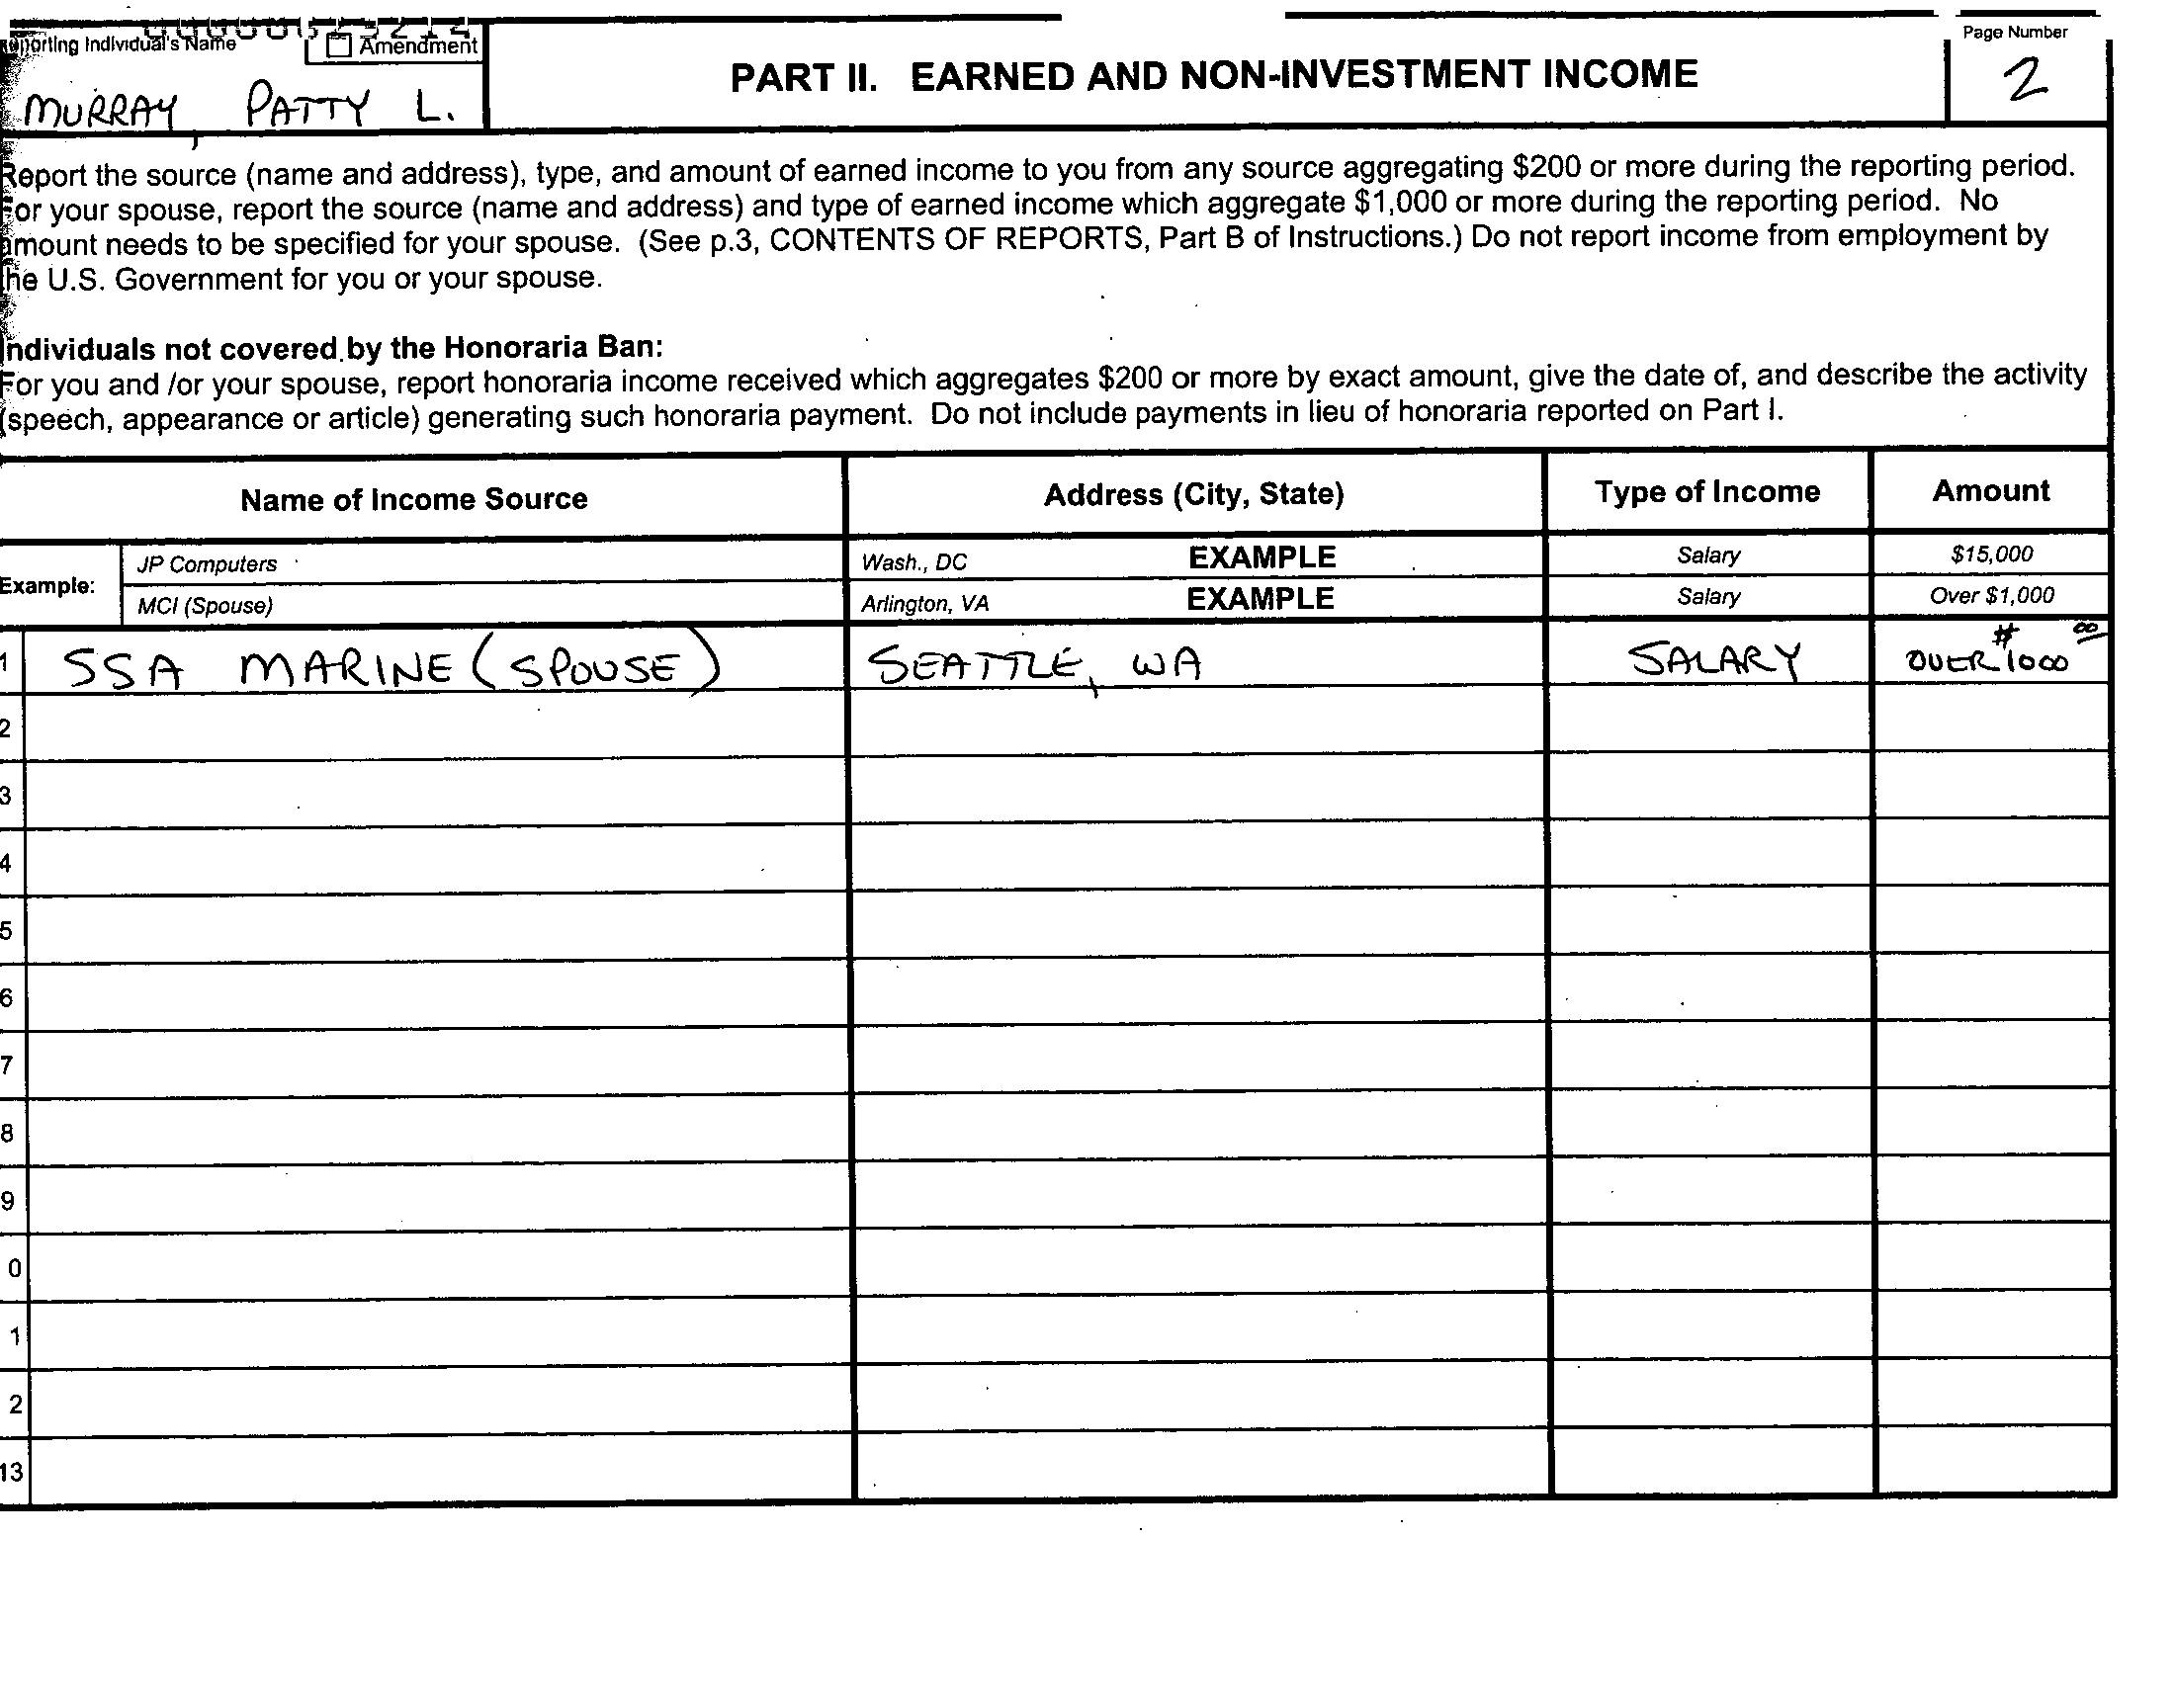 Reporting Individual's Name
Amendment
MURRAY, PATTY L.
PART II. EARNED AND NON-INVESTMENT INCOME
Page Number
2
Report the source (name and address), type, and amount of earned income to you from any source aggregating $200 or more during the reporting period.
For your spouse, report the source (name and address) and type of earned income which aggregate $1,000 or more during the reporting period. No
amount needs to be specified for your spouse. (See p.3, CONTENTS OF REPORTS, Part B of Instructions.) Do not report income from employment by
the U.S. Government for you or your spouse.
Individuals not covered by the Honoraria Ban:
For you and /or your spouse, report honoraria income received which aggregates $200 or more by exact amount, give the date of, and describe the activity
(speech, appearance or article) generating such honoraria payment. Do not include payments in lieu of honoraria reported on Part I.
Name of Income Source Address (City, State) Type of Income Amount
Example:
JP Computers Wash., DC EXAMPLE Salary $15,000
MCI (Spouse) Arlington, VA EXAMPLE Salary Over $1,000
1 SSA MARINE (SPOUSE) SEATTLE, WA SALARY OVER $1000 00
2
3
4
5
6
7
8
9
0
1
2
13